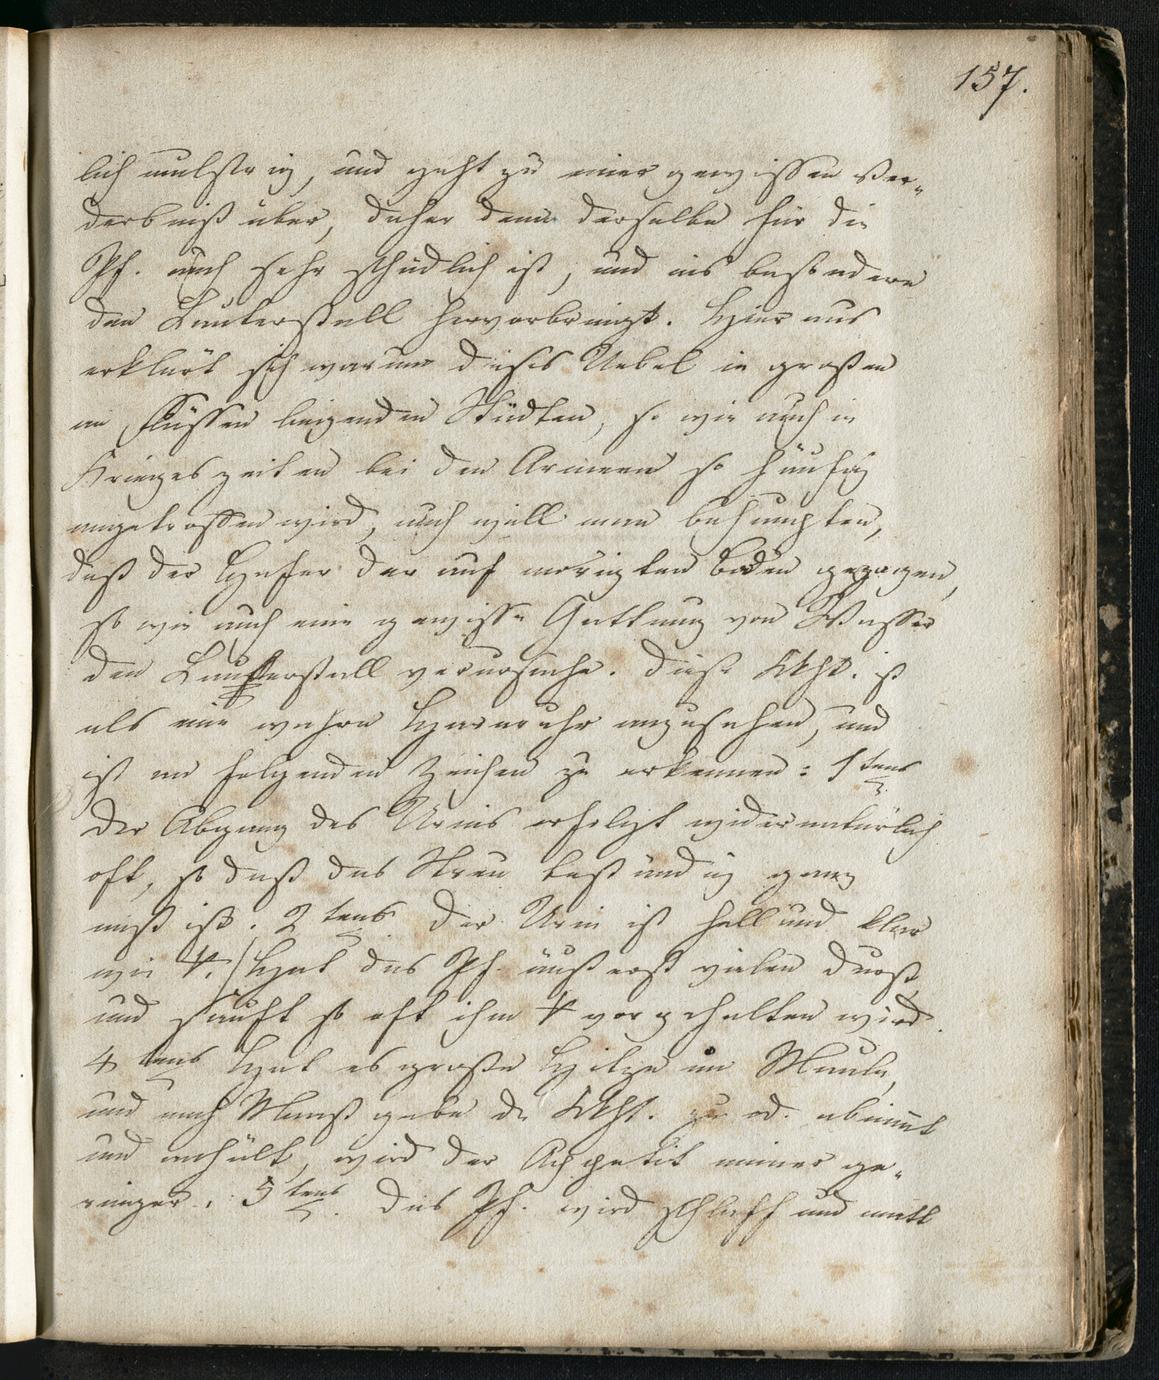 157.
lich mulstrig, und geht zu einer gewissen Ver-
derbniß über, daher denn derselbe für die
Pf. auch sehr schädlich ist, und ins besondere
den Lauterstall hervorbringt. Hier aus
erklärt sich warum dieses Uebel in großen
an Flüssen liegenden Städten, so wie auch in
Kriegeszeiten bei den Armeen so häufig
angetroffen wird, auch will man behaupten,
daß der Hafer der auf morigten Boden gezogen,
so wie auch eine gewisse Gattung von Wasser
den Lauterstall verursache. Diese Kkht. ist
als eine wahre Harnruhr anzusehen, und
ist an folgenden Zeichen zu erkennen: 1tens
Der Abgang des Urins erfolgt widernatürlich
oft, so daß das Streu beständig ganz
naß ist. 2tens Der Urin ist hell und klar
wie Hat das Pf. äußerst vielen Durst,
und sauft so oft ihm vorgehalten wird.
4tens Hat es große Hitze im Maule,
und nach Maaß gabe die Kkht. zu od. abnimmt
und anhält, wird der Appetit immer ge-
ringer. 5tens. Das Pf. wird schlaff und matt